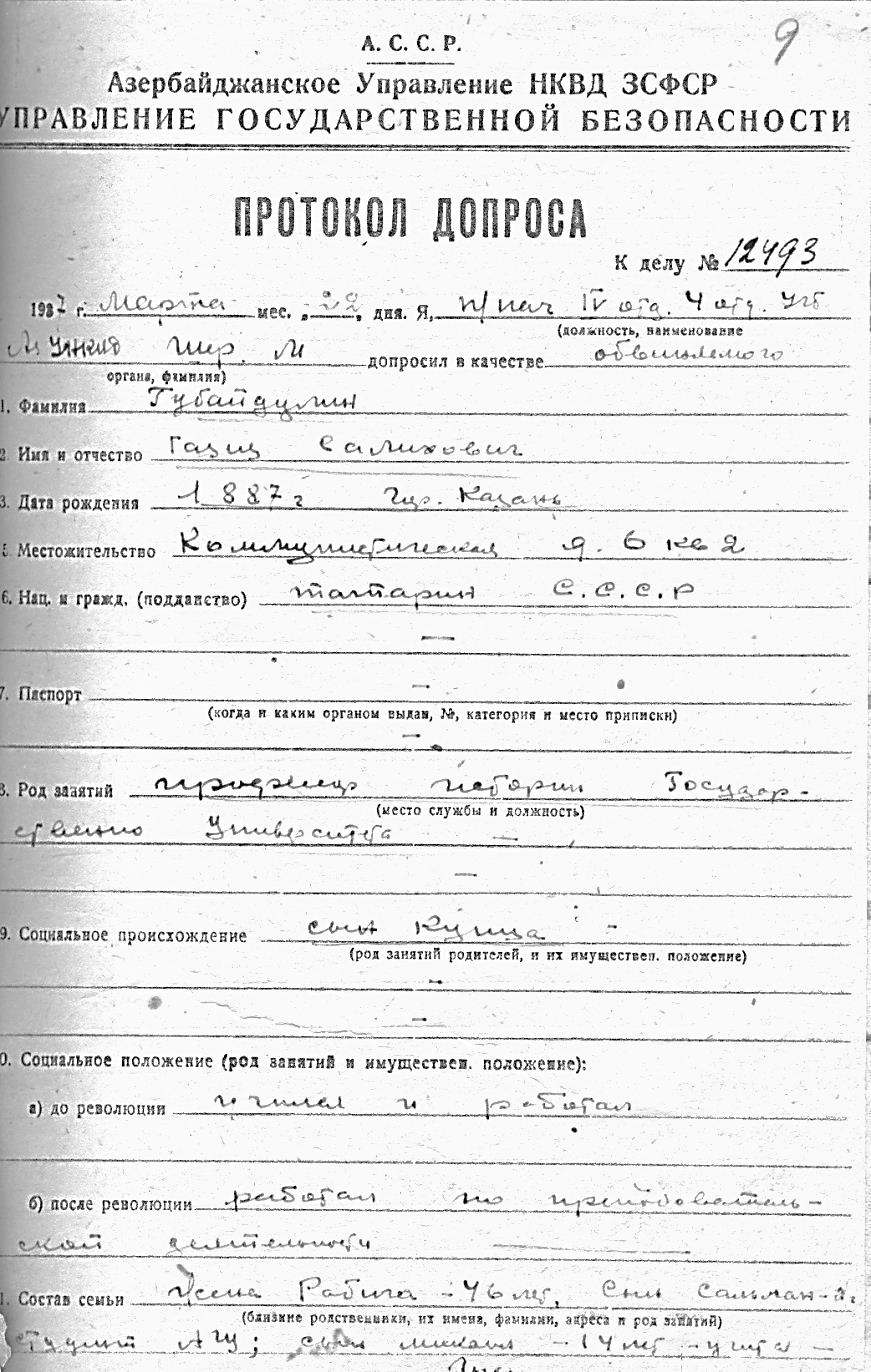 9
А. С. С. Р.
Азербайджанское Управление НКВД ЗСФСР
УПРАВЛЕНИЕ ГОСУДАРСТВЕННОЙ БЕЗОПАСНОСТИ
ПРОТОКОЛ ДОПРОСА
К делу № 12493
1937 г. Марта мес. „22„ дня. Я, п/нач IV отд. 4 отд. УГБ
(должность, наименование
допросил в качестве обвиняемого
органа, фамилия)
1. Фамилия Губайдулин
2. Имя и отчество Газиз Салихович
3. Дата рождения 1887 г гор. Казань
5. Местожительство Коммунистическая д. 6 кв 2
6. Нац. и гражд. (подданство) татарин С.С.С.Р
—
7. Паспорт —
(когда и каким органом выдан, №, категория и место приписки)
—
8. Род занятий истории Государ-
(место службы и должность)
ственно Университета —
—
9. Социальное происхождение сын купца —
(род занятий родителей, и их имуществен. положение)
—
—
0. Социальное положение (род занятий и имуществен. положение):
а) до революции учился и работал
б) после революции работал по преподователь-
ской деятельности —
1. Состав семьи Жена Рабига - 46 лет, Сын Сальман-
(близкие родственники, их имена, фамилии, адреса и род занятий)
студент АГУ; сын Микаил - 14 лет -